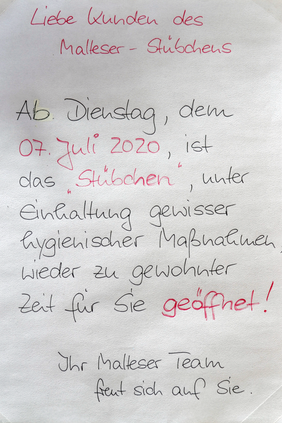 Liebe Kunden des
Malteser - Stübchens
Ab Dienstag, dem
07. Juli 2020, ist
das "Stübchen", unter
Einhaltung gewisser
hygienischer Maßnahmen
wieder zu gewohnter
Zeit für Sie geöffnet!
Ihr Malteser Team
freut sich auf Sie.